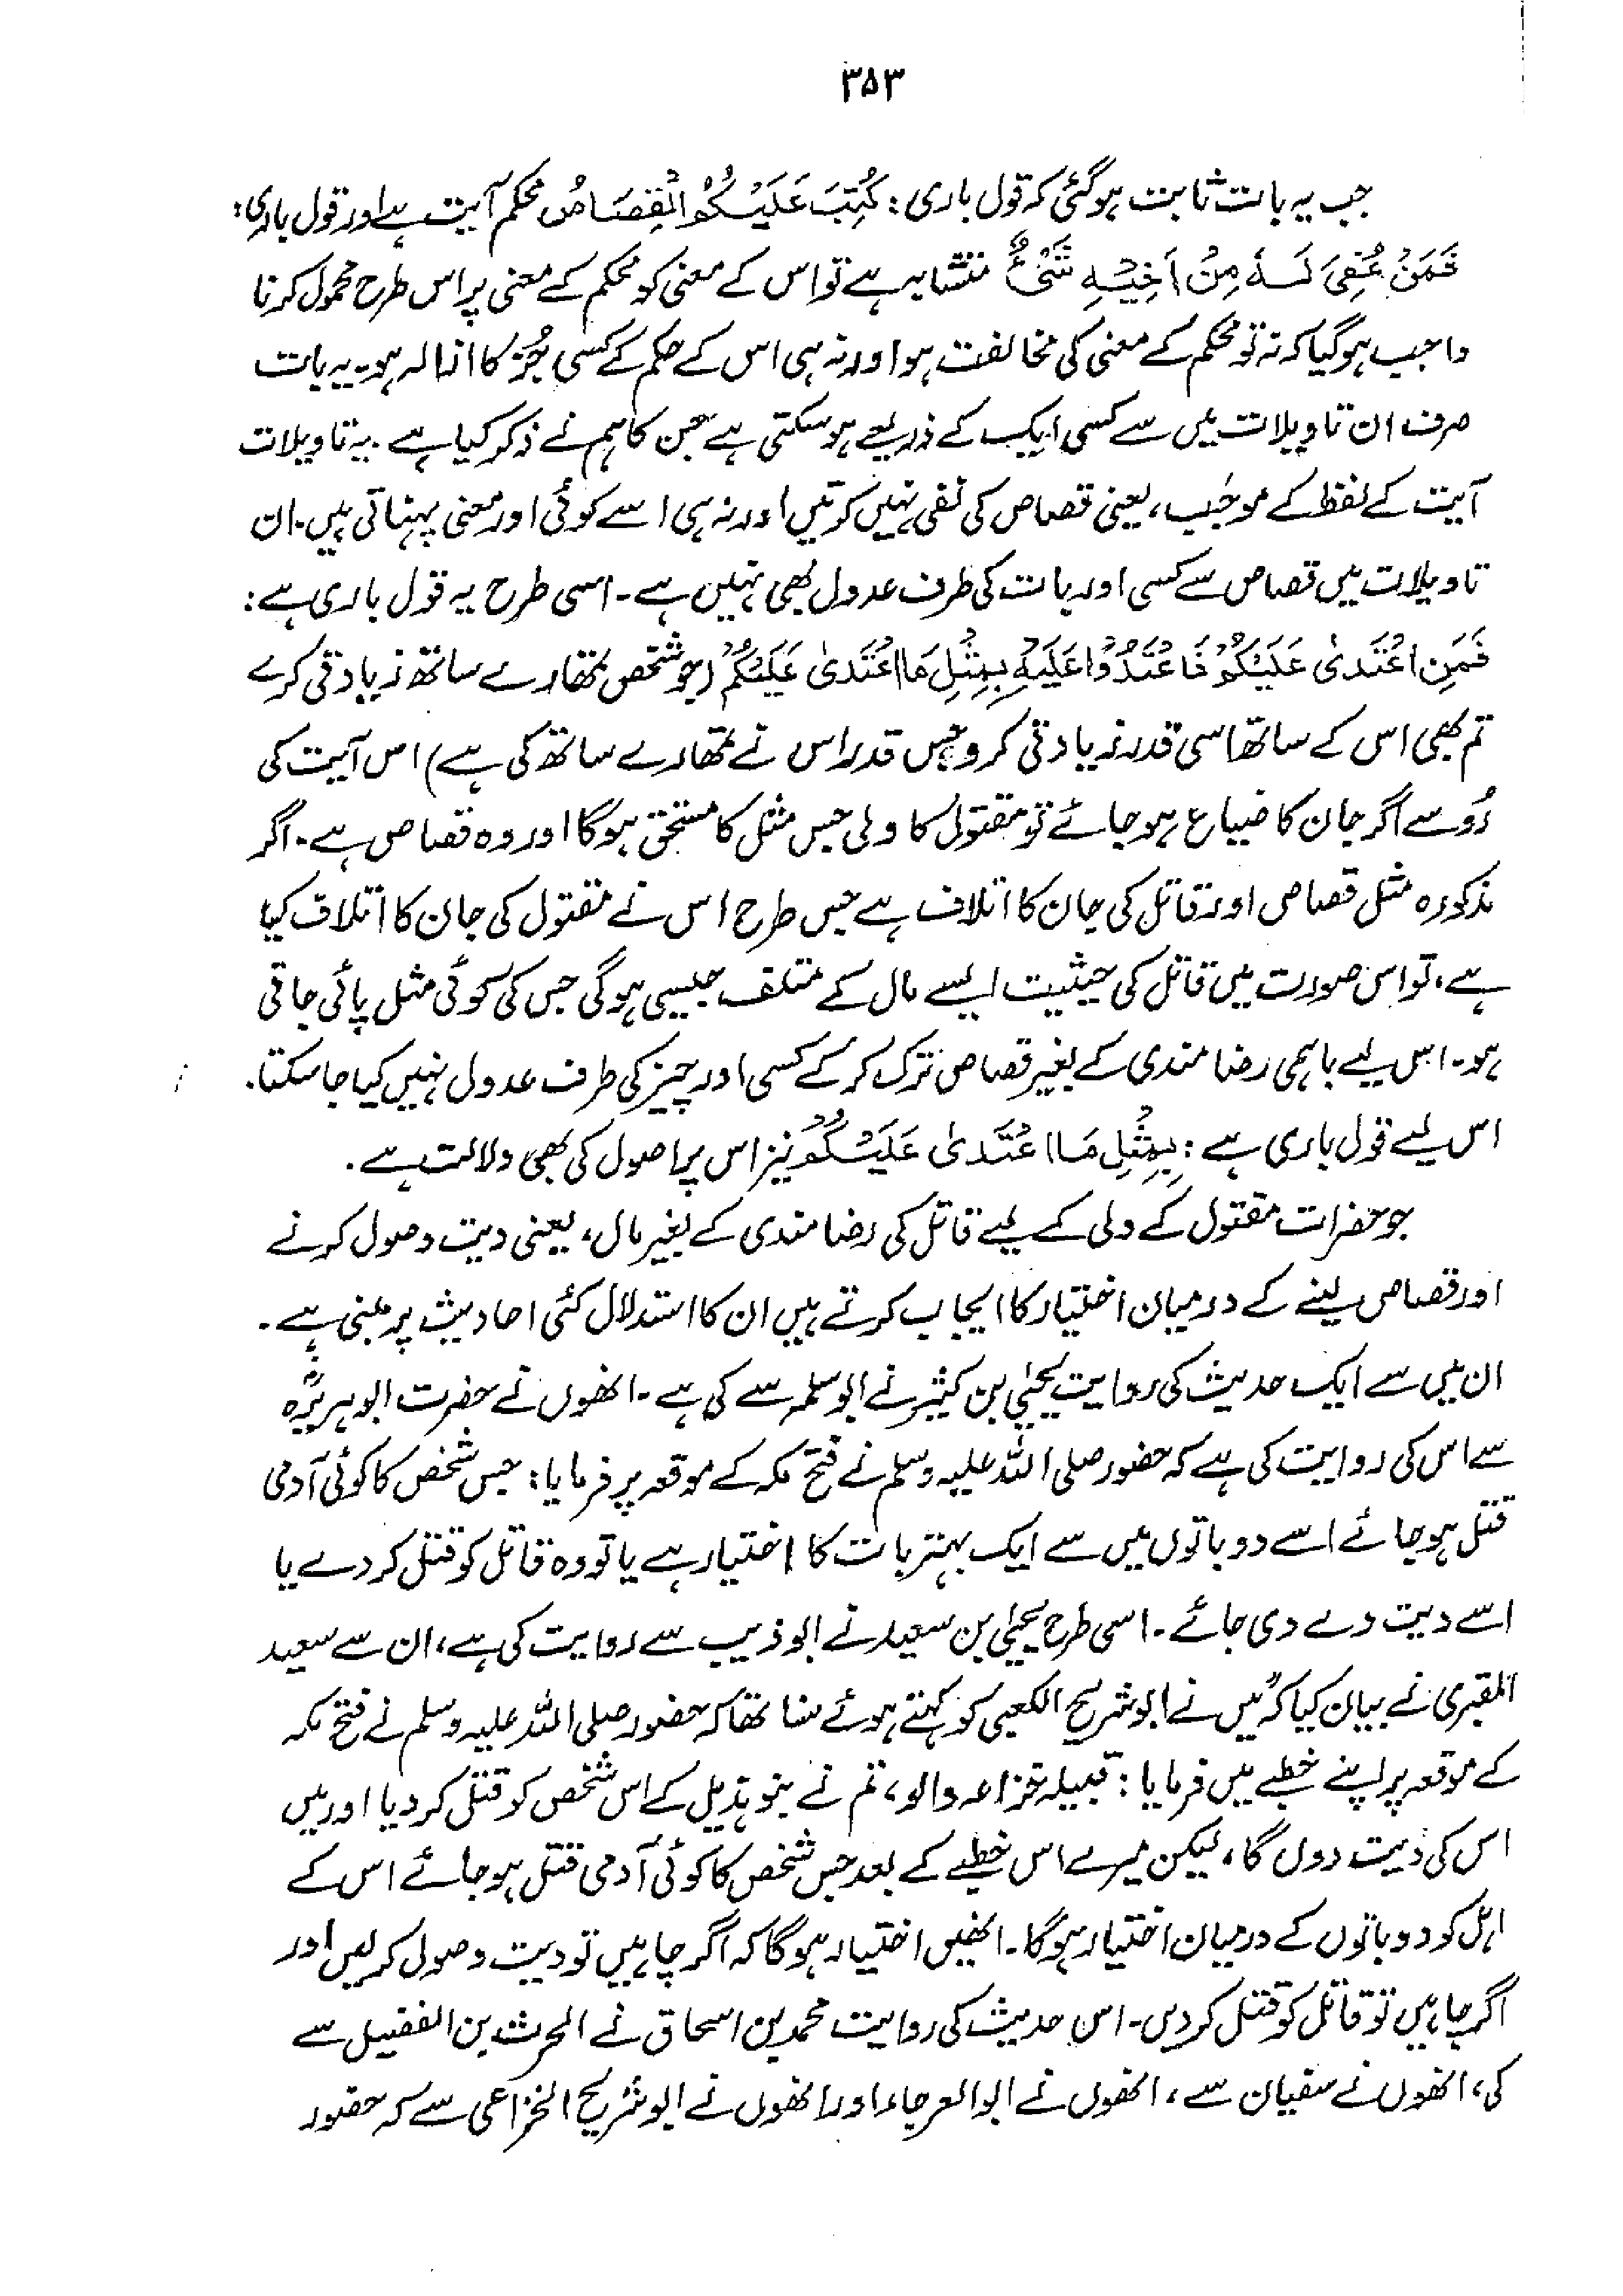 ۳۵۳
جب یہ بات ثابت ہوگئی کہ قول باری : كُتِبَ عَلَيْكُمُ الْقِصَاصُ محکم آیت ہے اور قول باری :
فَمَنْ عُفِيَ لَهُ مِنْ أَخِيهِ شَيْءٌ متشابہ ہے تو اس کے معنی کو محکم کے معنی پر اس طرح محمول کرنا
واجب ہوگیا کہ نہ تو محکم کے معنی کی مخالفت ہو اور نہ ہی اس کے حکم کے کسی جُز کا ازالہ ہو۔ یہ بات
صرف ان تاویلات میں سے کسی ایک کے ذریعے ہوسکتی ہے جن کا ہم نے ذکر کیا ہے ۔ یہ تاویلات
آیت کے لفظ کے موجَب، یعنی قصاص کی نفی نہیں کرتیں اور نہ ہی اسے کوئی اور معنی پہناتی ہیں۔ ان
تاویلات میں قصاص سے کسی اور بات کی طرف عدول بھی نہیں ہے ۔ اسی طرح یہ قول باری ہے :
فَمَنِ اعْتَدَىٰ عَلَيْكُمْ فَاعْتَدُوْا عَلَيْهِ بِمِثْلِ مَا اعْتَدَىٰ عَلَيْكُمْ (جو شخص تمھارے ساتھ زیادتی کرے
تم بھی اس کے ساتھ اسی قدر زیادتی کرو جس قدر اس نے تمھارے ساتھ کی ہے) اس آیت کی
رُو سے اگر جان کا ضیاع ہوجائے تو مقتول کا ولی جس مثل کا مستحق ہوگا اور وہ قصاص ہے ۔ اگر
مذکورہ مثل قصاص اور قاتل کی جان کا اتلاف ہے جس طرح اس نے مقتول کی جان کا اتلاف کیا
ہے، تو اس صورت میں قاتل کی حیثیت ایسے مال کے متلف جیسی ہوگی جس کی کوئی مثل پائی جاتی
ہو۔ اس لیے باہمی رضامندی کے بغیر قصاص ترک کرکے کسی اور چیز کی طرف عدول نہیں کیا جاسکتا ۔
اس لیے قول باری ہے : بِمِثْلِ مَا اعْتَدَىٰ عَلَيْكُمْ نیز اس پر اصول کی بھی دلالت ہے ۔
جو حضرات مقتول کے ولی کے لیے قاتل کی رضامندی کے بغیر مال، یعنی دیت وصول کرنے
اور قصاص لینے کے درمیان اختیار کا ایجاب کرتے ہیں ان کا استدلال کئی احادیث پر مبنی ہے ۔
ان میں سے ایک حدیث کی روایت یحییٰ بن کثیر نے ابوسلمہ سے کی ہے ۔ انھوں نے حضرت ابوہریرہؓ
سے اس کی روایت کی ہے کہ حضور صلی اللہ علیہ وسلم نے فتح مکہ کے موقعہ پر فرمایا : جس شخص کا کوئی آدمی
قتل ہوجائے اسے دو باتوں میں سے ایک بہتر بات کا اختیار ہے یا تو وہ قاتل کو قتل کردے یا
اسے دیت دے دی جائے ۔ اسی طرح یحییٰ بن سعید نے ابوذئیب سے روایت کی ہے، ان سے سعید
المقبری نے بیان کیا کہ میں نے ابوشریح الکعبی کو کہتے ہوئے سنا تھا کہ حضور صلی اللہ علیہ وسلم نے فتح مکہ
کے موقعہ پر اپنے خطبے میں فرمایا : قبیلہ خزاعہ والو، تم نے بنو ہذیل کے اس شخص کو قتل کردیا اور میں
اس کی دیت دوں گا، لیکن میرے اس خطبے کے بعد جس شخص کا کوئی آدمی قتل ہوجائے اس کے
اہل کو دو باتوں کے درمیان اختیار ہوگا ۔ انھیں اختیار ہوگا کہ اگر چاہیں تو دیت وصول کرلیں اور
اگر چاہیں تو قاتل کو قتل کردیں ۔ اس حدیث کی روایت محمد بن اسحاق نے الحرث بن الفضیل سے
کی، انھوں نے سفیان سے، انھوں نے ابوالعرجاء اور انھوں نے ابوشریح الخزاعی سے کہ حضور